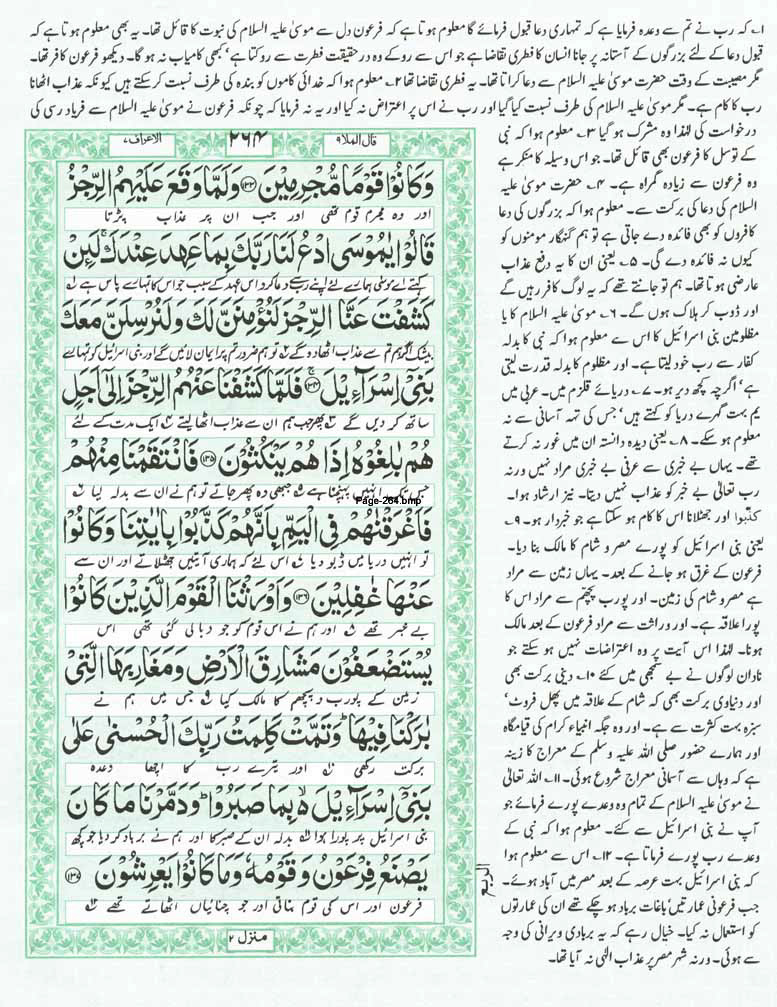 ۱۔ کہ رب نے تم سے وعدہ فرمایا ہے کہ تمہاری دعا قبول فرمائے گا معلوم ہوتا ہے کہ فرعون دل سے موسیٰ علیہ السلام کی نبوت کا قائل تھا۔ یہ بھی معلوم ہوتا ہے کہ
قبول دعا کے لئے بزرگوں کے آستانہ پر جانا انسان کا فطری تقاضا ہے جو اس سے روکے وہ در حقیقت فطرت سے روکتا ہے، کبھی کامیاب نہ ہو گا۔ دیکھو فرعون کافر تھا۔
مگر مصیبت کے وقت حضرت موسیٰ علیہ السلام سے دعا کراتا تھا۔ یہ فطری تقاضا تھا ۲۔ معلوم ہوا کہ خدائی کاموں کو بندہ کی طرف نسبت کر سکتے ہیں کیونکہ عذاب اٹھانا
رب کا کام ہے۔ مگر موسیٰ علیہ السلام کی طرف نسبت کیا گیا اور رب نے اس پر اعتراض نہ کیا اور یہ نہ فرمایا کہ چونکہ فرعون نے موسیٰ علیہ السلام سے فریاد رسی کی
درخواست کی لہٰذا وہ مشرک ہو گیا ۳۔ معلوم ہوا کہ نبی
کے توسل کا فرعون بھی قائل تھا۔ جو اس وسیلہ کا منکر ہے
وہ فرعون سے زیادہ گمراہ ہے۔ ۴۔ حضرت موسیٰ علیہ
السلام کی دعا کی برکت سے۔ معلوم ہوا کہ بزرگوں کی دعا
کافروں کو بھی فائدہ دے جاتی ہے تو ہم گنہگار مومنوں کو
کیوں نہ فائدہ دے گی۔ ۵۔ یعنی ان کا یہ دفع عذاب
عارضی ہوتا تھا۔ ہم تو جانتے تھے کہ یہ لوگ کافر رہیں گے
اور ڈوب کر ہلاک ہوں گے۔ ۶۔ موسیٰ علیہ السلام کا یا
مظلومین بنی اسرائیل کا اس سے معلوم ہوا کہ نبی کا بدلہ
کفار سے رب خود لیتا ہے۔ اور مظلوم کا بدلہ قدرت لیتی
ہے، اگرچہ کچھ دیر ہو۔ ۷۔ دریائے قلزم میں۔ عربی میں
یم بہت گہرے دریا کو کہتے ہیں، جس کی تہہ آسانی سے نہ
معلوم ہو سکے۔ ۸۔ یعنی دیدہ دانستہ ان میں غور نہ کرتے
تھے۔ یہاں بے خبری سے عرفی بے خبری مراد نہیں ورنہ
رب تعالیٰ بے خبر کو عذاب نہیں دیتا۔ نیز ارشاد ہوا۔
کذبوا اور جھٹلانا اس کا کام ہو سکتا ہے جو خبردار ہو۔ ۹۔
یعنی بنی اسرائیل کو پورے مصر و شام کا مالک بنا دیا۔
فرعون کے غرق ہو جانے کے بعد۔ یہاں زمین سے مراد
ہے مصر و شام کی زمین۔ اور پورب پچھم سے مراد اس کا
پورا علاقہ ہے۔ اور وراثت سے مراد فرعون کے بعد مالک
ہونا۔ لہٰذا اس آیت پر وہ اعتراضات نہیں ہو سکتے جو
نادان لوگوں نے بے سمجھی میں کئے ۱۰۔ دینی برکت بھی
اور دنیاوی برکت بھی کہ شام کے علاقہ میں پھل فروٹ،
سبزہ بہت کثرت سے ہے۔ اور وہ جگہ انبیاء کرام کی قیامگاہ
اور ہمارے حضور صلی اللہ علیہ وسلم کے معراج کا زینہ
ہے کہ وہاں سے آسمانی معراج شروع ہوئی۔ ۱۱۔ اللہ تعالیٰ
نے موسیٰ علیہ السلام کے تمام وہ وعدے پورے فرمائے جو
آپ نے بنی اسرائیل سے کئے۔ معلوم ہوا کہ نبی کے
وعدے رب پورے فرماتا ہے۔ ۱۲۔ اس سے معلوم ہوا
کہ بنی اسرائیل بہت عرصہ کے بعد مصر میں آباد ہوئے۔
جب فرعونی عمارتیں، باغات برباد ہو چکے تھے ان کی عمارتوں
کو استعمال نہ کیا۔ خیال رہے کہ یہ بربادی ویرانی کی وجہ
سے ہوئی۔ ورنہ شہر مصر پر عذاب الٰہی نہ آیا تھا۔
قال الملا۹ ۲۶۴ الاعراف۷
وَكَانُوْا قَوْمًا مُّجْرِمِيْنَ ﴿۱۳۳﴾ وَلَمَّا وَقَعَ عَلَيْهِمُ الرِّجْزُ
اور وہ مجرم قوم تھی اور جب ان پر عذاب پڑتا
قَالُوْا يٰمُوْسَى ادْعُ لَنَا رَبَّكَ بِمَا عَهِدَ عِنْدَكَ ۚ لَئِنْ
کہتے اے موسیٰ ہمارے لئے اپنے رب سے دعا کرو اس عہد کے سبب جو اس کا تمہارے پاس ہے
كَشَفْتَ عَنَّا الرِّجْزَ لَنُؤْمِنَنَّ لَكَ وَلَنُرْسِلَنَّ مَعَكَ
بیشک اگر تم ہم سے عذاب اٹھا دو گے تو ہم ضرور تم پر ایمان لائیں گے اور بنی اسرائیل کو تمہارے
بَنِيْٓ اِسْرَآءِيْلَ ﴿۱۳۴﴾ فَلَمَّا كَشَفْنَا عَنْهُمُ الرِّجْزَ اِلٰٓى اَجَلٍ
ساتھ کر دیں گے پھر جب ہم ان سے عذاب اٹھا لیتے ایک مدت کے لئے
هُمْ بٰلِغُوْهُ اِذَا هُمْ يَنْكُثُوْنَ ﴿۱۳۵﴾ فَانْتَقَمْنَا مِنْهُمْ
جس تک انہیں پہنچنا ہے جبھی وہ پھر جاتے تو ہم نے ان سے بدلہ لیا
Page-264.bmp
فَاَغْرَقْنٰهُمْ فِي الْيَمِّ بِاَنَّهُمْ كَذَّبُوْا بِاٰيٰتِنَا وَكَانُوْا
تو انہیں دریا میں ڈبو دیا اس لئے کہ ہماری آیتیں جھٹلاتے اور ان سے
عَنْهَا غٰفِلِيْنَ ﴿۱۳۶﴾ وَاَوْرَثْنَا الْقَوْمَ الَّذِيْنَ كَانُوْا
بے خبر تھے اور ہم نے اس قوم کو جو دبا لی گئی تھی اس
يُسْتَضْعَفُوْنَ مَشَارِقَ الْاَرْضِ وَمَغَارِبَهَا الَّتِيْ
زمین کے پورب و پچھم کا مالک کیا جس میں ہم نے
بٰرَكْنَا فِيْهَا ؕ وَتَمَّتْ كَلِمَتُ رَبِّكَ الْحُسْنٰى عَلٰى
برکت رکھی اور تیرے رب کا اچھا وعدہ
بَنِيْٓ اِسْرَآءِيْلَ ۙ بِمَا صَبَرُوْا ؕ وَدَمَّرْنَا مَا كَانَ
بنی اسرائیل پر پورا ہوا بدلہ ان کے صبر کا اور ہم نے برباد کر دیا جو کچھ
يَصْنَعُ فِرْعَوْنُ وَقَوْمُهٗ وَمَا كَانُوْا يَعْرِشُوْنَ ﴿۱۳۷﴾
فرعون اور اس کی قوم بناتی اور جو چنائیاں اٹھاتے تھے
الربع
منزل ۲